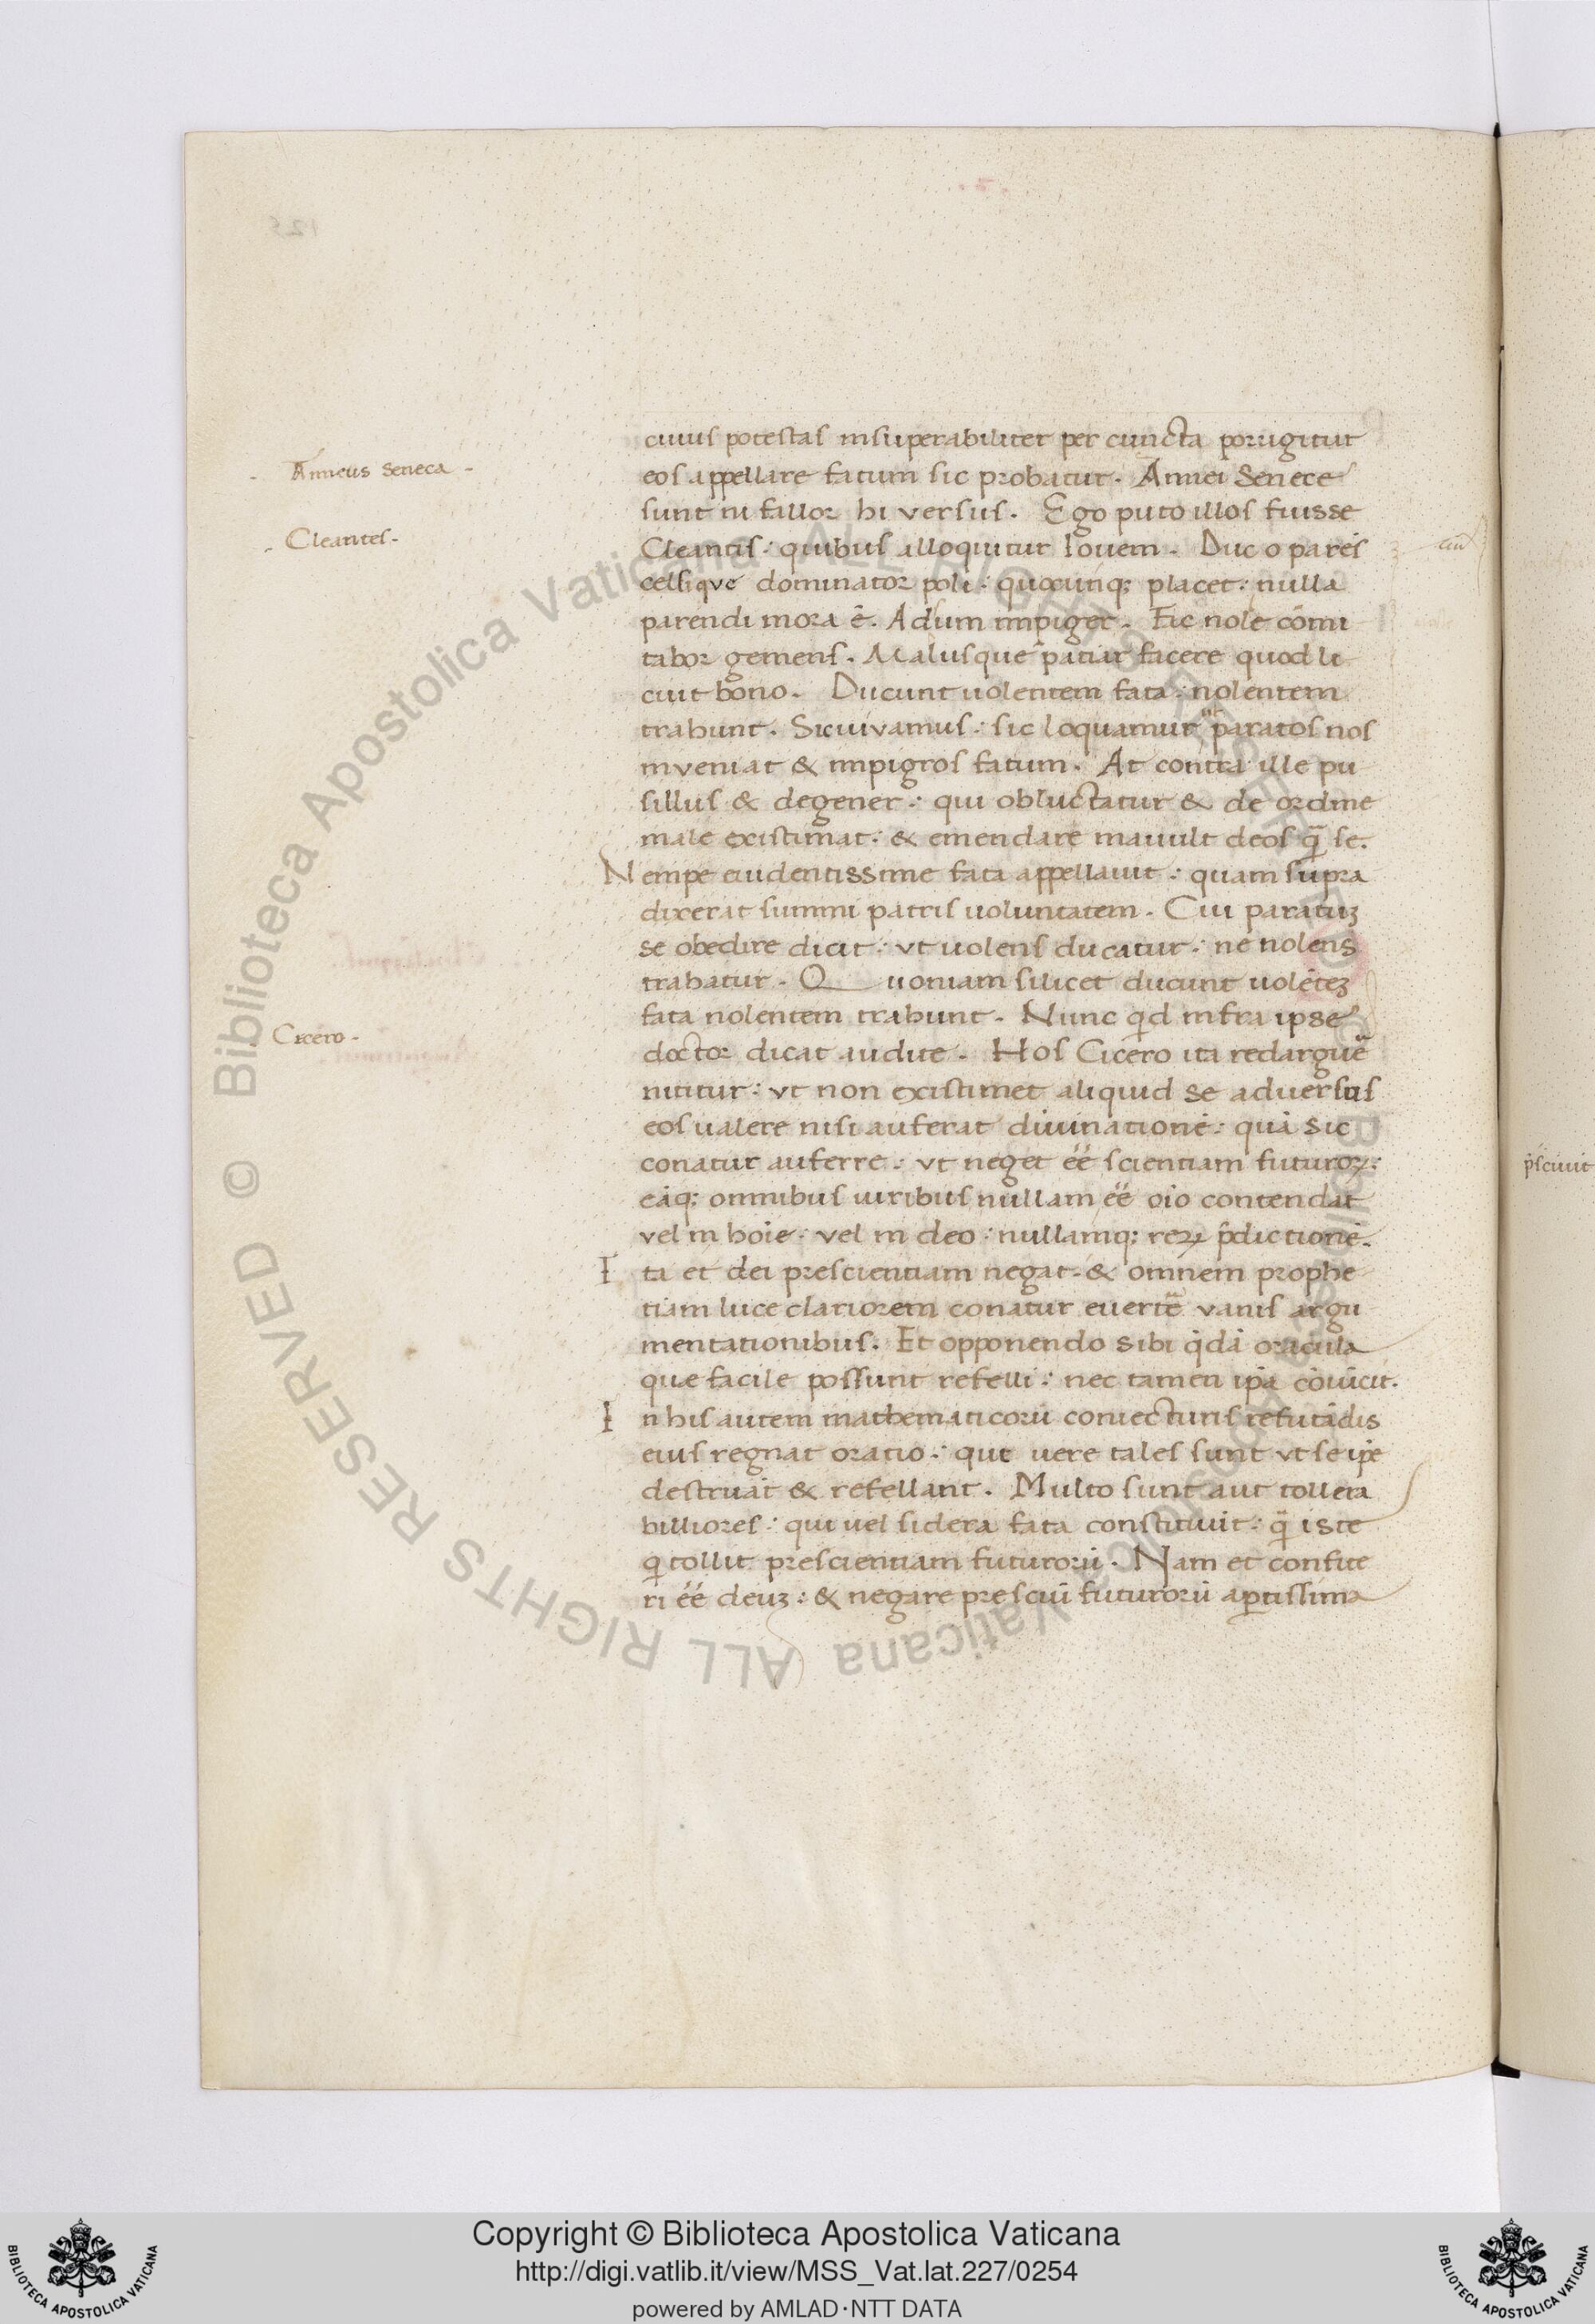 cuius potestas insuperabiliter per cuncta porrigitur
Anneus Seneca
eos appellare fatum sic probatur. Annei Senece
sunt ni fallor hi versus. Ego puto illos fuisse
Cleantes
Cleantis: quibus alloquitur Iouem. Duc o parẽs
cellique dominator poli: quocunq; placet: nulla
parendi mora ẽ. Adsum impiger. Fac nole cõmi
tabor gemens. Malusque patiar facere quod li
cuit bono. Ducunt uolentem fata: nolentem
trahunt. Sic uivamus: sic loquamur paratos nos
inveniat & impigros fatum. At contra ille pu
sillus & degener: qui obluctatur & de ordine
male existimat: & emendare mauult deos q̃ se.
Nempe euidentissime fata appellauit: quam supra
dixerat summi patris uoluntatem. Cui paratuȝ
se obedire dicit: vt uolens ducatur: ne nolens
trahatur. Quoniam silicet ducunt uolẽteȝ
fata nolentem trahunt. Nunc qd infra ipse
Cicero
doctor dicat audite. Hos Cicero ita redarguẽ
nititur: vt non existimet aliquid se adversus
eos ualere nisi auferat diuinationẽ: quã sic
conatur auferre: vt neget ẽẽ scientiam futuroꝝ:
eãq; omnibus uiribus nullam ẽẽ oio contendat
vel in hoie: vel in deo: nullamq; reꝝ p̃dictionẽ.
Ita et dei prescientiam negat & omnem prophe
tiam luce clariorem conatur euertẽ vanis argu
mentationibus. Et opponendo sibi q̇dã oracula
quae facile possunt refelli: nec tamen ip̃a cõuĩcit.
In his autem mathematicorũ coniecturis refutãdis
eius regnat oratio: que vere tales sunt vt se ip̃e
destruãt & refellant. Multo sunt aut tollera
billiores: qui uel sidera fata constituũt: q̃ iste
q̇ tollit prescientiam futurorũ. Nam et confite
ri ẽẽ deuȝ: & negare presciũ futurorũ ap̱tissima
Copyright © Biblioteca Apostolica Vaticana
http://digi.vatlib.it/view/MSS_Vat.lat.227/0254
powered by AMLAD·NTT DATA